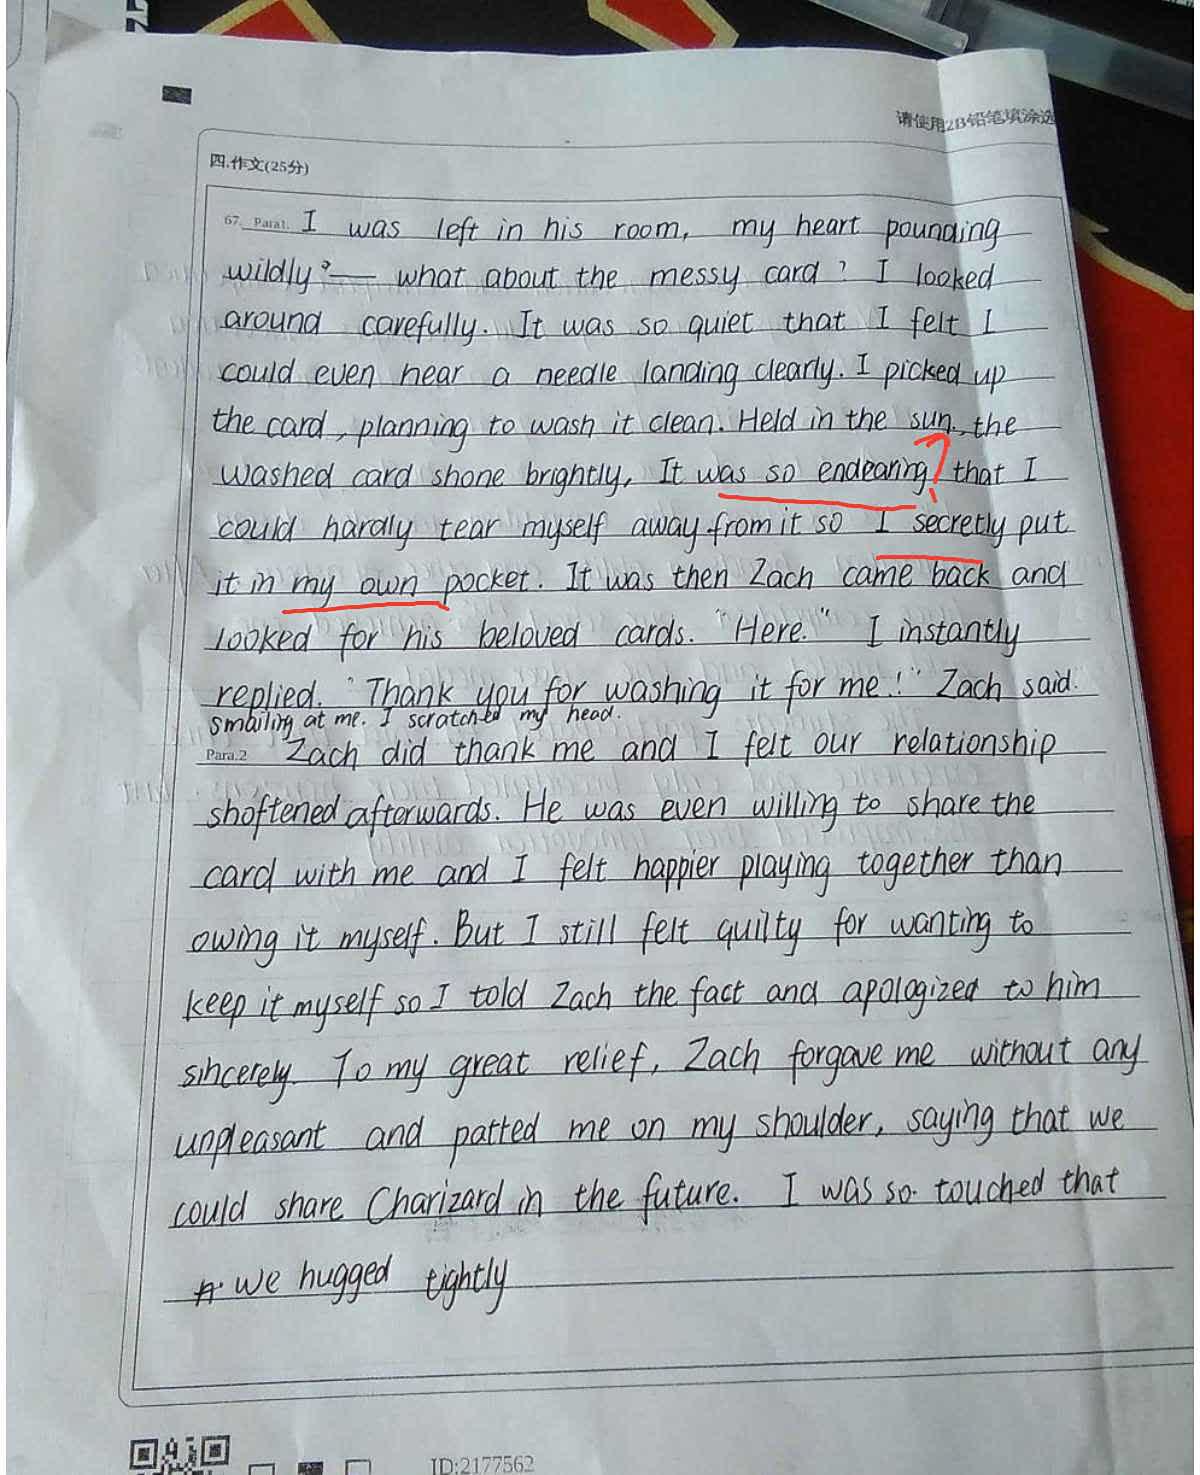 请使用2B铅笔填涂选
四.作文(25分)
67. Para1. I was left in his room, my heart pounding
wildly?— what about the messy card? I looked
around carefully. It was so quiet that I felt I
could even hear a needle landing clearly. I picked up
the card, planning to wash it clean. Held in the sun, the
washed card shone brightly, It was so endearing? that I
could hardly tear myself away from it so I secretly put
it in my own pocket. It was then Zach came back and
looked for his beloved cards. "Here." I instantly
replied. "Thank you for washing it for me!" Zach said.
smailing at me. I scratched my head.
Para.2 Zach did thank me and I felt our relationship
shoftened afterwards. He was even willing to share the
card with me and I felt happier playing together than
owing it myself. But I still felt quilty for wanting to
keep it myself so I told Zach the fact and apologized to him
sincerely. To my great relief, Zach forgave me without any
unpleasant and patted me on my shoulder, saying that we
could share Charizard in the future. I was so touched that
we hugged tightly
ID:2177562